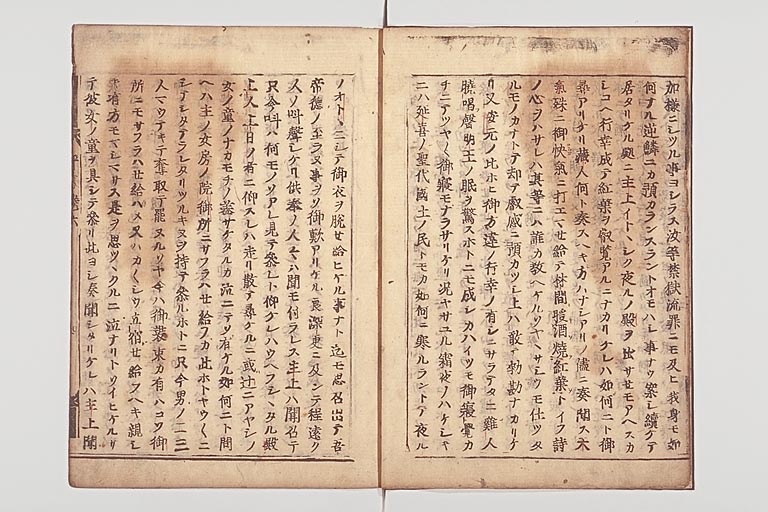 加様ニシツル事ヨシテス汝等禁獄流罪ニモ及ヒ我身モ如
何ナル逆鱗ニカ預カランスラントオモハレ事ナウ案シ續ケテ
居タリケル処ニ主上イトヽシク夜ルノ殿ヲ出サセモアヘスカ
シコヘ行幸成テ紅葉ヲ叡覧アルニナカリケレハ如何ニト御
尋アリケリ蔵人何ト奏スヘキ方ハナシアリノ儘ニ奏聞ス天
氣殊ニ御快氣ニ打エハセ給テ林間煖酒燒紅葉トイフ詩
ノ心ヲハサレハ其等ニハ誰カ教ヘケルソヤヤサシウモ仕ツタ
ルモノカナトテ却テ叡感ニ預カツシ上ハ敢テ勅勘ナカリケ
リ又安元ノ比ホヒ御方違ノ行幸ノ有シニサラテタニ雞人
曉唱聲明王ノ眠ヲ驚スホトニモ成シカハイツモ御寝覺カ
チニテツヤ〱御寝モナラサリケリ况ヤサユル霜夜ノハケシキ
ニハ延喜ノ聖代國土ノ民トモカ如何ニ寒ルラントテ夜ル
ノオトヽニシテ御衣ヲ脱セ給ヒケル事ナト迄モ思召出テ吾
帝徳ノ至ラヌ事ヲソ御歎アリケル良深更ニ及ンテ程遠ク
人ノ叫聲シケリ供奉ノ人々ハ聞モ付ラレス主上ハ聞召テ
只今叫ハ何モノソアレ見テ參レト仰ケレハウヘフシヽタル殿
上人上日ノ者ニ仰スレハ走リ散テ尋ケルニ或辻ニアヤシノ
女ノ童ノナカモチノ蓋サケタルカ泣ニテソ有ケル如何ニト問
ヘハ主ノ女房ノ院御所ニサフラハセ給フカ此ホトヤウ〱ニ
シテシタテラレタリツルキヌヲ持テ參ルホトニ只今男ノ二三
人マウテキテ奪取テ罷ヌルソヤ今ハ御裝束カ有ハコソ御
所ニモサフラハせ給ハメ又ハカ〱シウ立宿せ給フヘキ親シ
キ御方モマシマサス是ヲ思ツヽクルニ泣ナリトソイヒケルサ
テ彼女ノ童ヲ具シテ參リ此ヨシ奏聞シタリケレハ主上聞